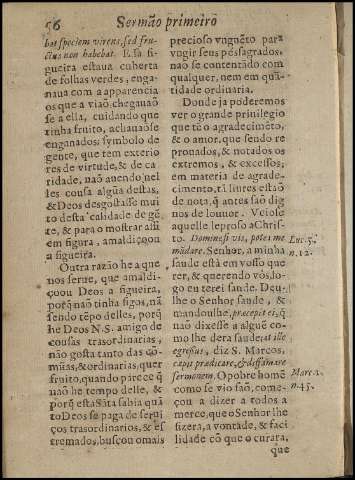 56
Sermão primeiro
bat speciem virens, sed fru-
ctus non habebat. Essa fi-
gueira estaua cuberta
de folhas verdes, enga-
naua com a apparencia
os que a vião. chegauão
se a ella, cuidando que
tinha fruito, achauãose
enganados: symbolo de
gente, que tem exterio
res de virtude, & de ca
ridade, não auendo nel
les cousa algũa destas,
& Deos desgostasse mui
to desta calidade de gẽ
te, & para o mostrar assi
em figura, amaldiçoou
a figueira.
Outra razão he a que
nos serue, que amaldi-
çoou Deos a figueira,
porq̃ não tinha figos, nã
sendo tẽpo delles, porq̃
he Deos N.S. amigo de
cousas trasordinarias,
não gosta tanto das cõ-
mũas, & ordinarias, quer
fruito, quando parece q̃
não he tempo delle, &
porq̃ esta Sãta sabia quã
to Deos se paga de serui
ços trasordinarios, & es
tremados, buscou o mais
precioso vnguẽto para
vngir seus pés sagrados,
não se contentãdo com
qualquer, nem em quã-
tidade ordinaria.
Donde ja poderemos
ver o grande priuilegio
que tẽ o agradecimẽto,
& o amor, que sendo re
prouados, & notados os
extremos, & excessos;
em materia de agrade-
cimento, tã liures estaõ
de nota, q̃ antes são dig
nos de louuor. Veiose
aquelle leproso a Chris-
to. Domine si vis, potes me
mũdare. Senhor, a minha
saude està em vosso que
rer, & querendo vòs, lo-
go eu terei saude. Deu-
lhe o Senhor saude, &
mandoulhe, præcepit ei, q̃
não dixesse a alguẽ co-
mo lhe dera saude, at ille
egressus, diz S. Marcos,
cæpit prædicare, & diffamare
sermonem. O pobre homẽ
como se vio são, come-
çou a dizer a todos a
merce, que o Senhor lhe
fizera, a vontade, & faci
lidade cõ que o curàra,
que
Luc. 5.
n. 12.
Marc. 1.
n. 45.